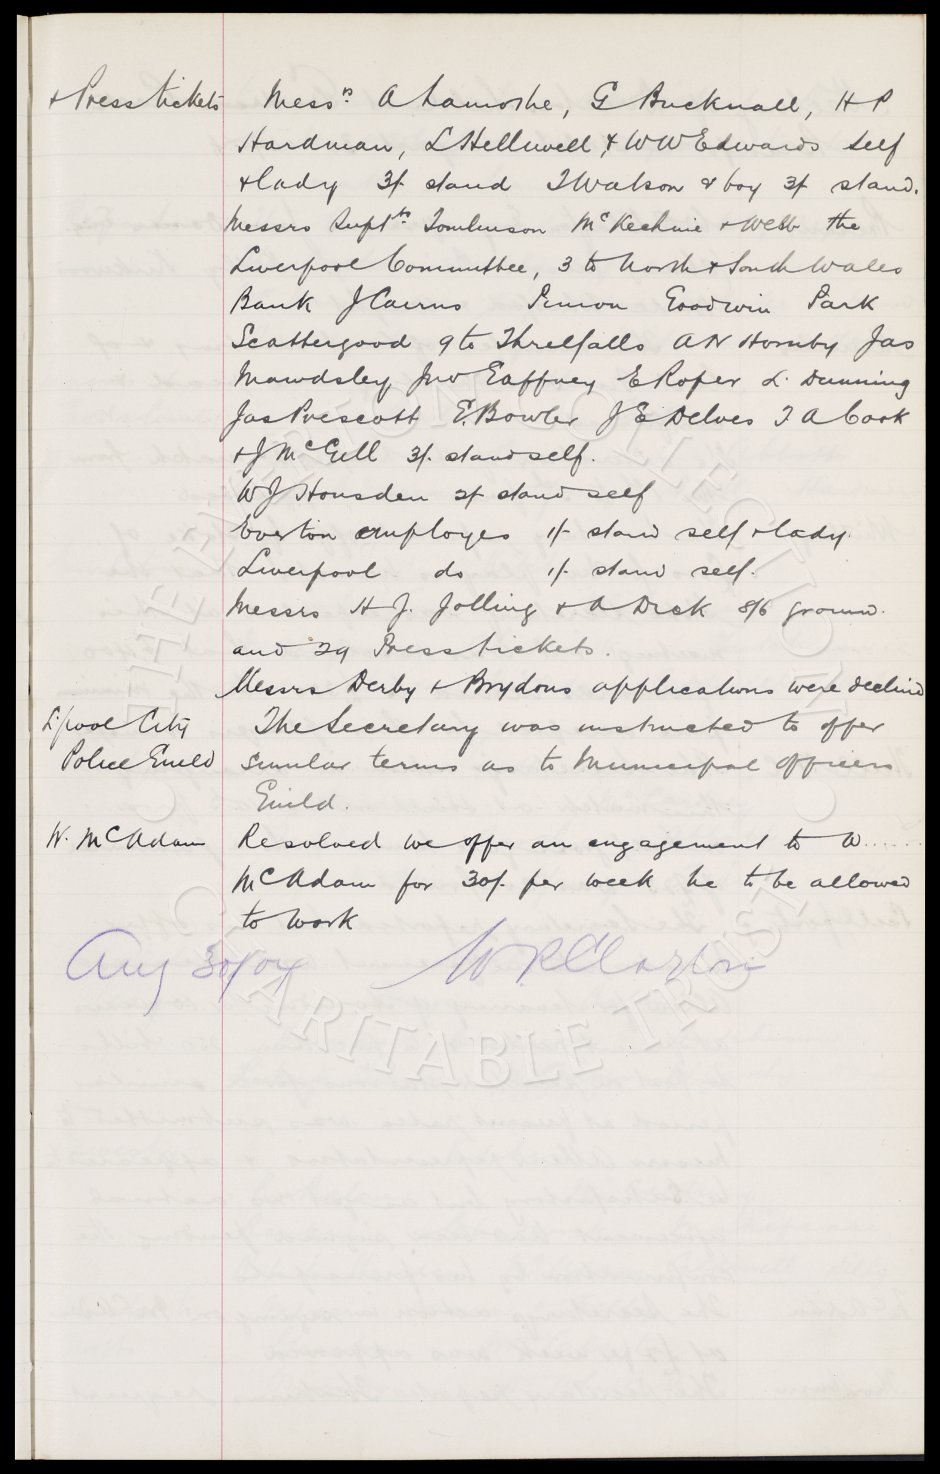 & Press tickets Messrs. A Lamothe, G Bucknall, H P
Hardman, L Helliwell, & W W Edwards self
& lady 3/- stand T Watson & boy 3/- stand.
Messrs Supts Tomlinson McKechnie & Webb the
Liverpool Committee, 3 to North & South Wales
Bank J Cairns Goodwin Park
Scattergood 9 to Threlfalls A N Hornby Jas
Mawdsley Jno Gaffney E Roper L. Dunning
Jas Prescott E. Bowler J E Delves T A Cook
& J McGill 3/- stand self.
W J Housden 2/- stand self
Everton employes 1/- stand self & lady.
Liverpool do 1/- stand self.
Messrs H J. Jolling & A Dick 8/6 ground.
and 29 Press tickets.
Messrs Derby & Brydons applications were declined
L'pool City The Secretary was instructed to offer
Police Guild similar terms as to Municipal Officers
Guild.
W. McAdam Resolved we offer an engagement to W......
McAdam for 30/- per week he to be allowed
to work
Aug 30/04 W R Clayton
THE EVERTON COLLECTION
CHARITABLE TRUST